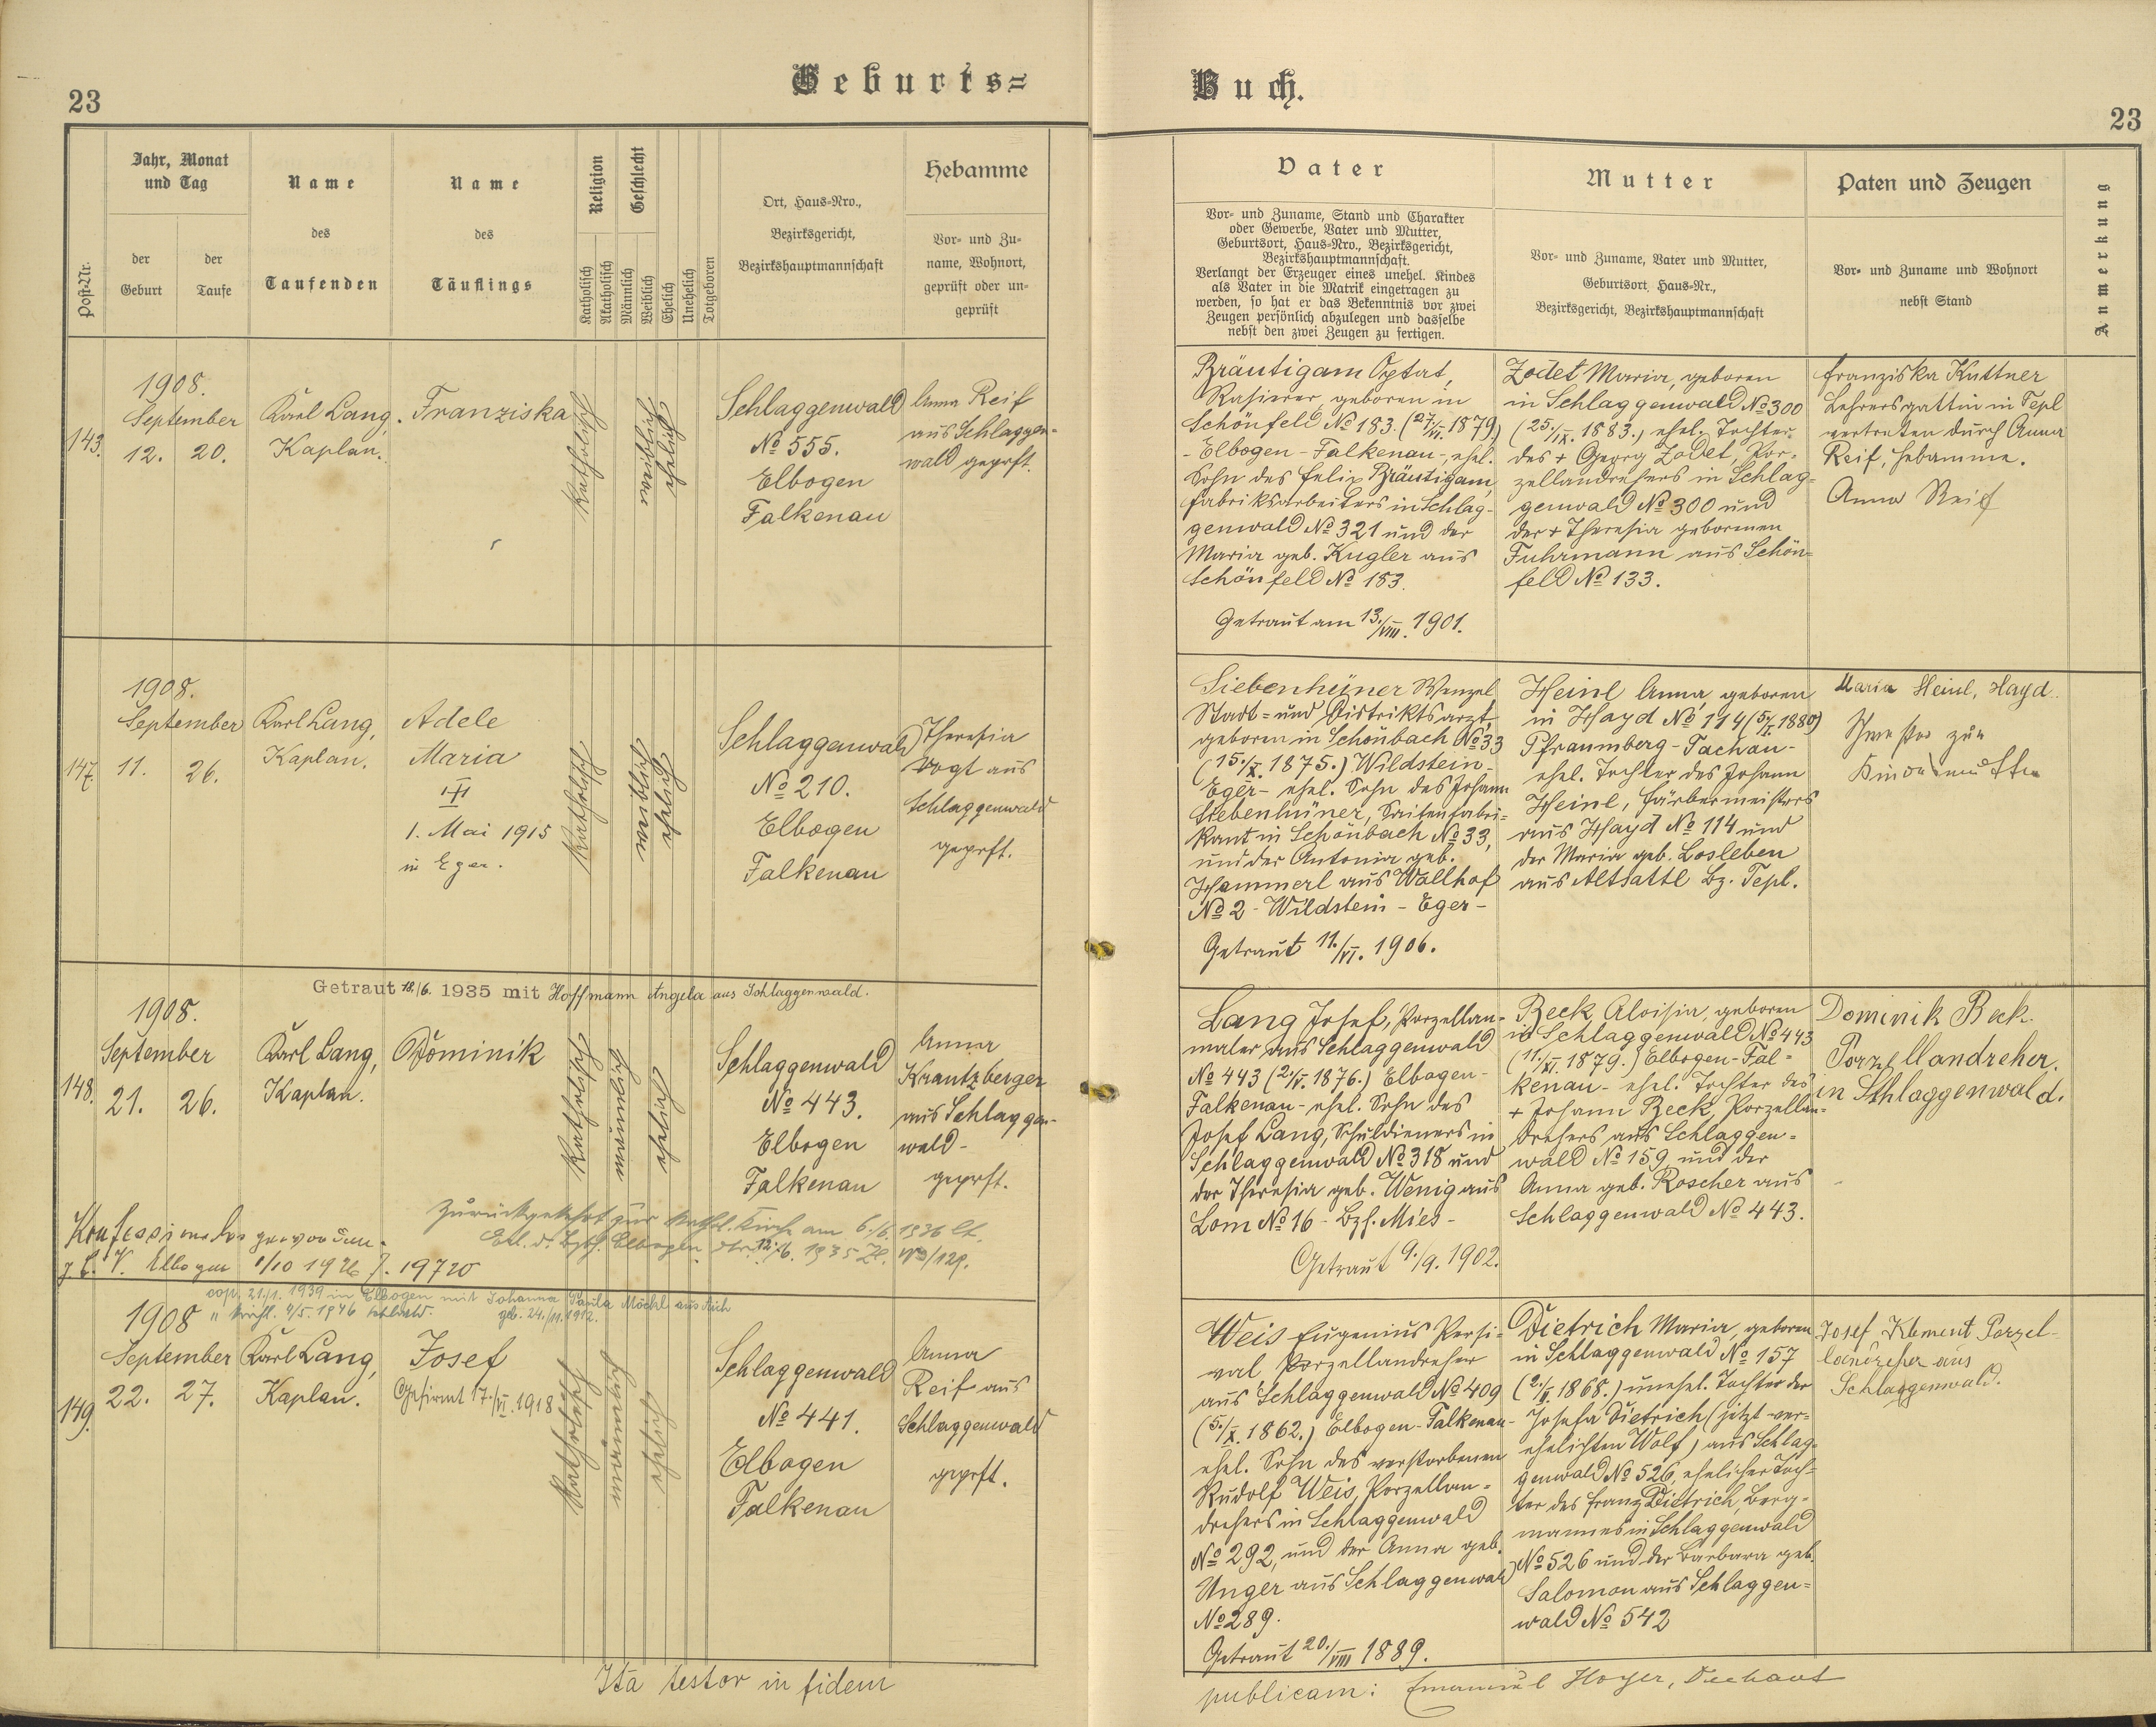 23
Geburts=
Jahr, Monat
und Tag
Post-Nr.
der
Geburt
der
Taufe
Name
des
Taufenden
Name
des
Täuflings
Religion
Katholisch
Akatholisch
Geschlecht
Männlich
Weiblich
Ehelich
Unehelich
Totgeboren
Ort, Haus=Nro.,
Bezirksgericht,
Bezirkshauptmannschaft
Hebamme
Vor= und Zu=
name, Wohnort,
geprüft oder un=
geprüft
143.
1908.
September
12. 20.
Karl Lang,
Kaplan.
Franziska
katholisch
weiblich
ehelich
Schlaggenwald
No 555.
Elbogen
Falkenau
Anna Reif
aus Schlaggen-
wald geprft.
147.
1908.
September
11. 26.
Karl Lang,
Kaplan.
Adele
Maria
1. Mai 1915
in Eger.
katholisch
weiblich
ehelich
Schlaggenwald
No 210.
Elbogen
Falkenau
Theresia
Vogt aus
Schlaggenwald
geprft.
Getraut 18./6. 1935 mit Hoffmann Angela aus Schlaggenwald.
148.
1908.
September
21. 26.
Karl Lang,
Kaplan.
Dominik
katholisch
männlich
ehelich
Schlaggenwald
No 443.
Elbogen
Falkenau
Anna
Krantzberger
aus Schlaggen-
wald-
geprft.
Zurückgekehrt zur kath. Kirche am 6./6. 1936 lt.
Erl. d. Bzkh. Elbogen 12./6. 1935
Konfessionslos geworden.
Z. B. V. Elbogen 1/10 1926 Z. 19720
cop. 21./1. 1939 in Elbogen mit Johanna Paula Möckl aus Aich
" kirchl. 4/5. 1946 Schlaschw. geb. 24./11. 1912.
149.
1908
September
22. 27.
Karl Lang,
Kaplan.
Josef
Gefirmt 17./VI. 1918
katholisch
männlich
ehelich
Schlaggenwald
No 441.
Elbogen
Falkenau
Anna
Reif aus
Schlaggenwald
geprft.
Ita testor in fidem
Buch.
23
Vater
Vor= und Zuname, Stand und Charakter
oder Gewerbe, Vater und Mutter,
Geburtsort, Haus=Nro., Bezirksgericht,
Bezirkshauptmannschaft.
Verlangt der Erzeuger eines unehel. Kindes
als Vater in die Matrik eingetragen zu
werden, so hat er das Bekenntnis vor zwei
Zeugen persönlich abzulegen und dasselbe
nebst den zwei Zeugen zu fertigen.
Mutter
Vor= und Zuname, Vater und Mutter,
Geburtsort, Haus=Nr.,
Bezirksgericht, Bezirkshauptmannschaft
Paten und Zeugen
Vor= und Zuname und Wohnort
nebst Stand
Anmerkung
Bräutigam Optat,
Rasierer, geboren in
Schönfeld No 183. (27./VI. 1879.)
- Elbogen - Falkenau -, ehel.
Sohn des Felix Bräutigam,
Fabriksarbeiters in Schlag-
genwald No 321 und der
Maria geb. Kugler aus
Schönfeld No 183.
Getraut am 13./VIII. 1901.
Zodel Maria, geboren
in Schlaggenwald No 300
(25./IX. 1883.) ehel. Tochter
des + Georg Zodel, Por-
zellandrehers in Schlag-
genwald No 300 und
der + Theresia geborenen
Fuhrmann aus Schön-
feld No 133.
Franziska Kuttner
Lehrersgattin in Tepl
vertreten durch Anna
Reif, Hebamme.
Anna Reif
Siebenhüner Wenzel
Stadt= und Distriktsarzt,
geboren in Schönbach No 33
(15./X. 1875.) Wildstein-
Eger- ehel. Sohn des Johann
Siebenhüner, Saitenfabri=
kant in Schönbach No 33,
und der Antonia geb.
Hammerl aus Wallhof
No 2 - Wildstein - Eger -
Getraut 11./VI. 1906.
Heinl Anna, geboren
in Hayd No 114 (5/X. 1880)
Pfraumberg - Tachau -
ehel. Tochter des Johann
Heinl, Färbermeisters
aus Hayd No 114 und
der Maria geb. Losleben
aus Altsattl Bz. Tepl.
Maria Heinl, Hayd.
Schwester zur
Kindesmutter
Lang Josef, Porzellan-
maler aus Schlaggenwald
No 443 (2./V. 1876.) Elbogen-
Falkenau - ehel. Sohn des
Josef Lang, Schuldieners in
Schlaggenwald No 318 und
der Theresia geb. Wenig aus
Lom No 16 - Bzh. Mies -
Getraut 9./9. 1902.
Beck Aloisia, geboren
in Schlaggenwald No 443
(11./XI. 1879.) Elbogen - Fal=
kenau - ehel. Tochter des
+ Johann Beck, Porzellan-
drehers aus Schlaggen=
wald No 159 und der
Anna geb. Roscher aus
Schlaggenwald No 443.
Dominik Beck.
Porzellandreher.
in Schlaggenwald.
Weis Eugenius Persi=
val Porzellandreher
aus Schlaggenwald No 409
(5./X. 1862.) Elbogen - Falkenau -
ehel. Sohn des verstorbenen
Rudolf Weis, Porzellan=
drehers in Schlaggenwald
No 292, und der Anna geb.
Unger aus Schlaggenwald
No 289.
Getraut 20./VIII 1889.
Dietrich Maria, geboren
in Schlaggenwald No 157
(2./II. 1868.) unehel. Tochter der
Josefa Dietrich (jetzt ver-
ehelichten Wolf) aus Schlag-
genwald No 526, ehelicher Toch=
ter des Franz Dietrich, Berg=
mannes in Schlaggenwald
No 526 und der Barbara geb.
Salomon aus Schlaggen=
wald No 542
Josef Klement Porzel-
landreher aus
Schlaggenwald.
publicam: Emanuel Hoyer, Dechant